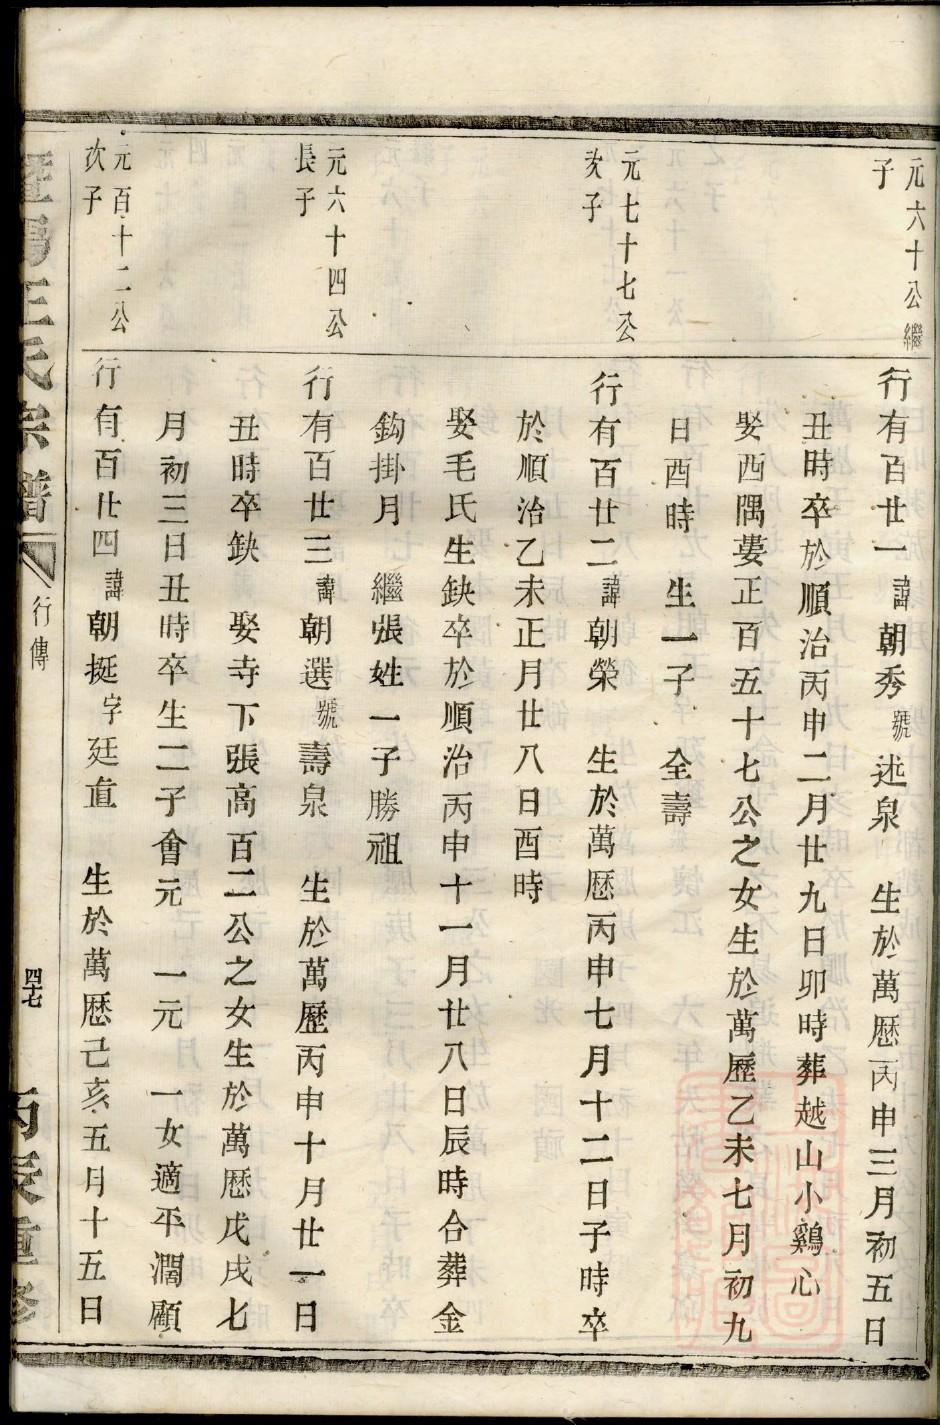 元六十公繼
子
行有百廿一諱朝秀號述泉 生於萬歷丙申三月初五日
丑時卒於順治丙申二月廿九日卯時葬越山小鷄心
娶西隅蔞正百五十七公之女生於萬歷乙未七月初九
日酉時 生一子 全壽
元七十七公
次子
行有百廿二諱朝榮 生於萬歷丙申七月十二日子時卒
於順治乙未正月廿八日酉時
娶毛氏生缺卒於順治丙申十一月廿八日辰時合葬金
鈎掛月 繼張姓 一子勝祖
元六十四公
長子
行有百廿三諱朝選號壽泉 生於萬歷丙申十月廿一日
丑時卒缺 娶寺下張高百二公之女生於萬歷戊戌七
月初三日丑時卒生二子會元 一元 一女適平濶顧
元百十二公
次子
行有百廿四諱朝挺字廷直 生於萬歷己亥五月十五日
暨陽王氏宗譜
行傳
四十七
丙辰重修